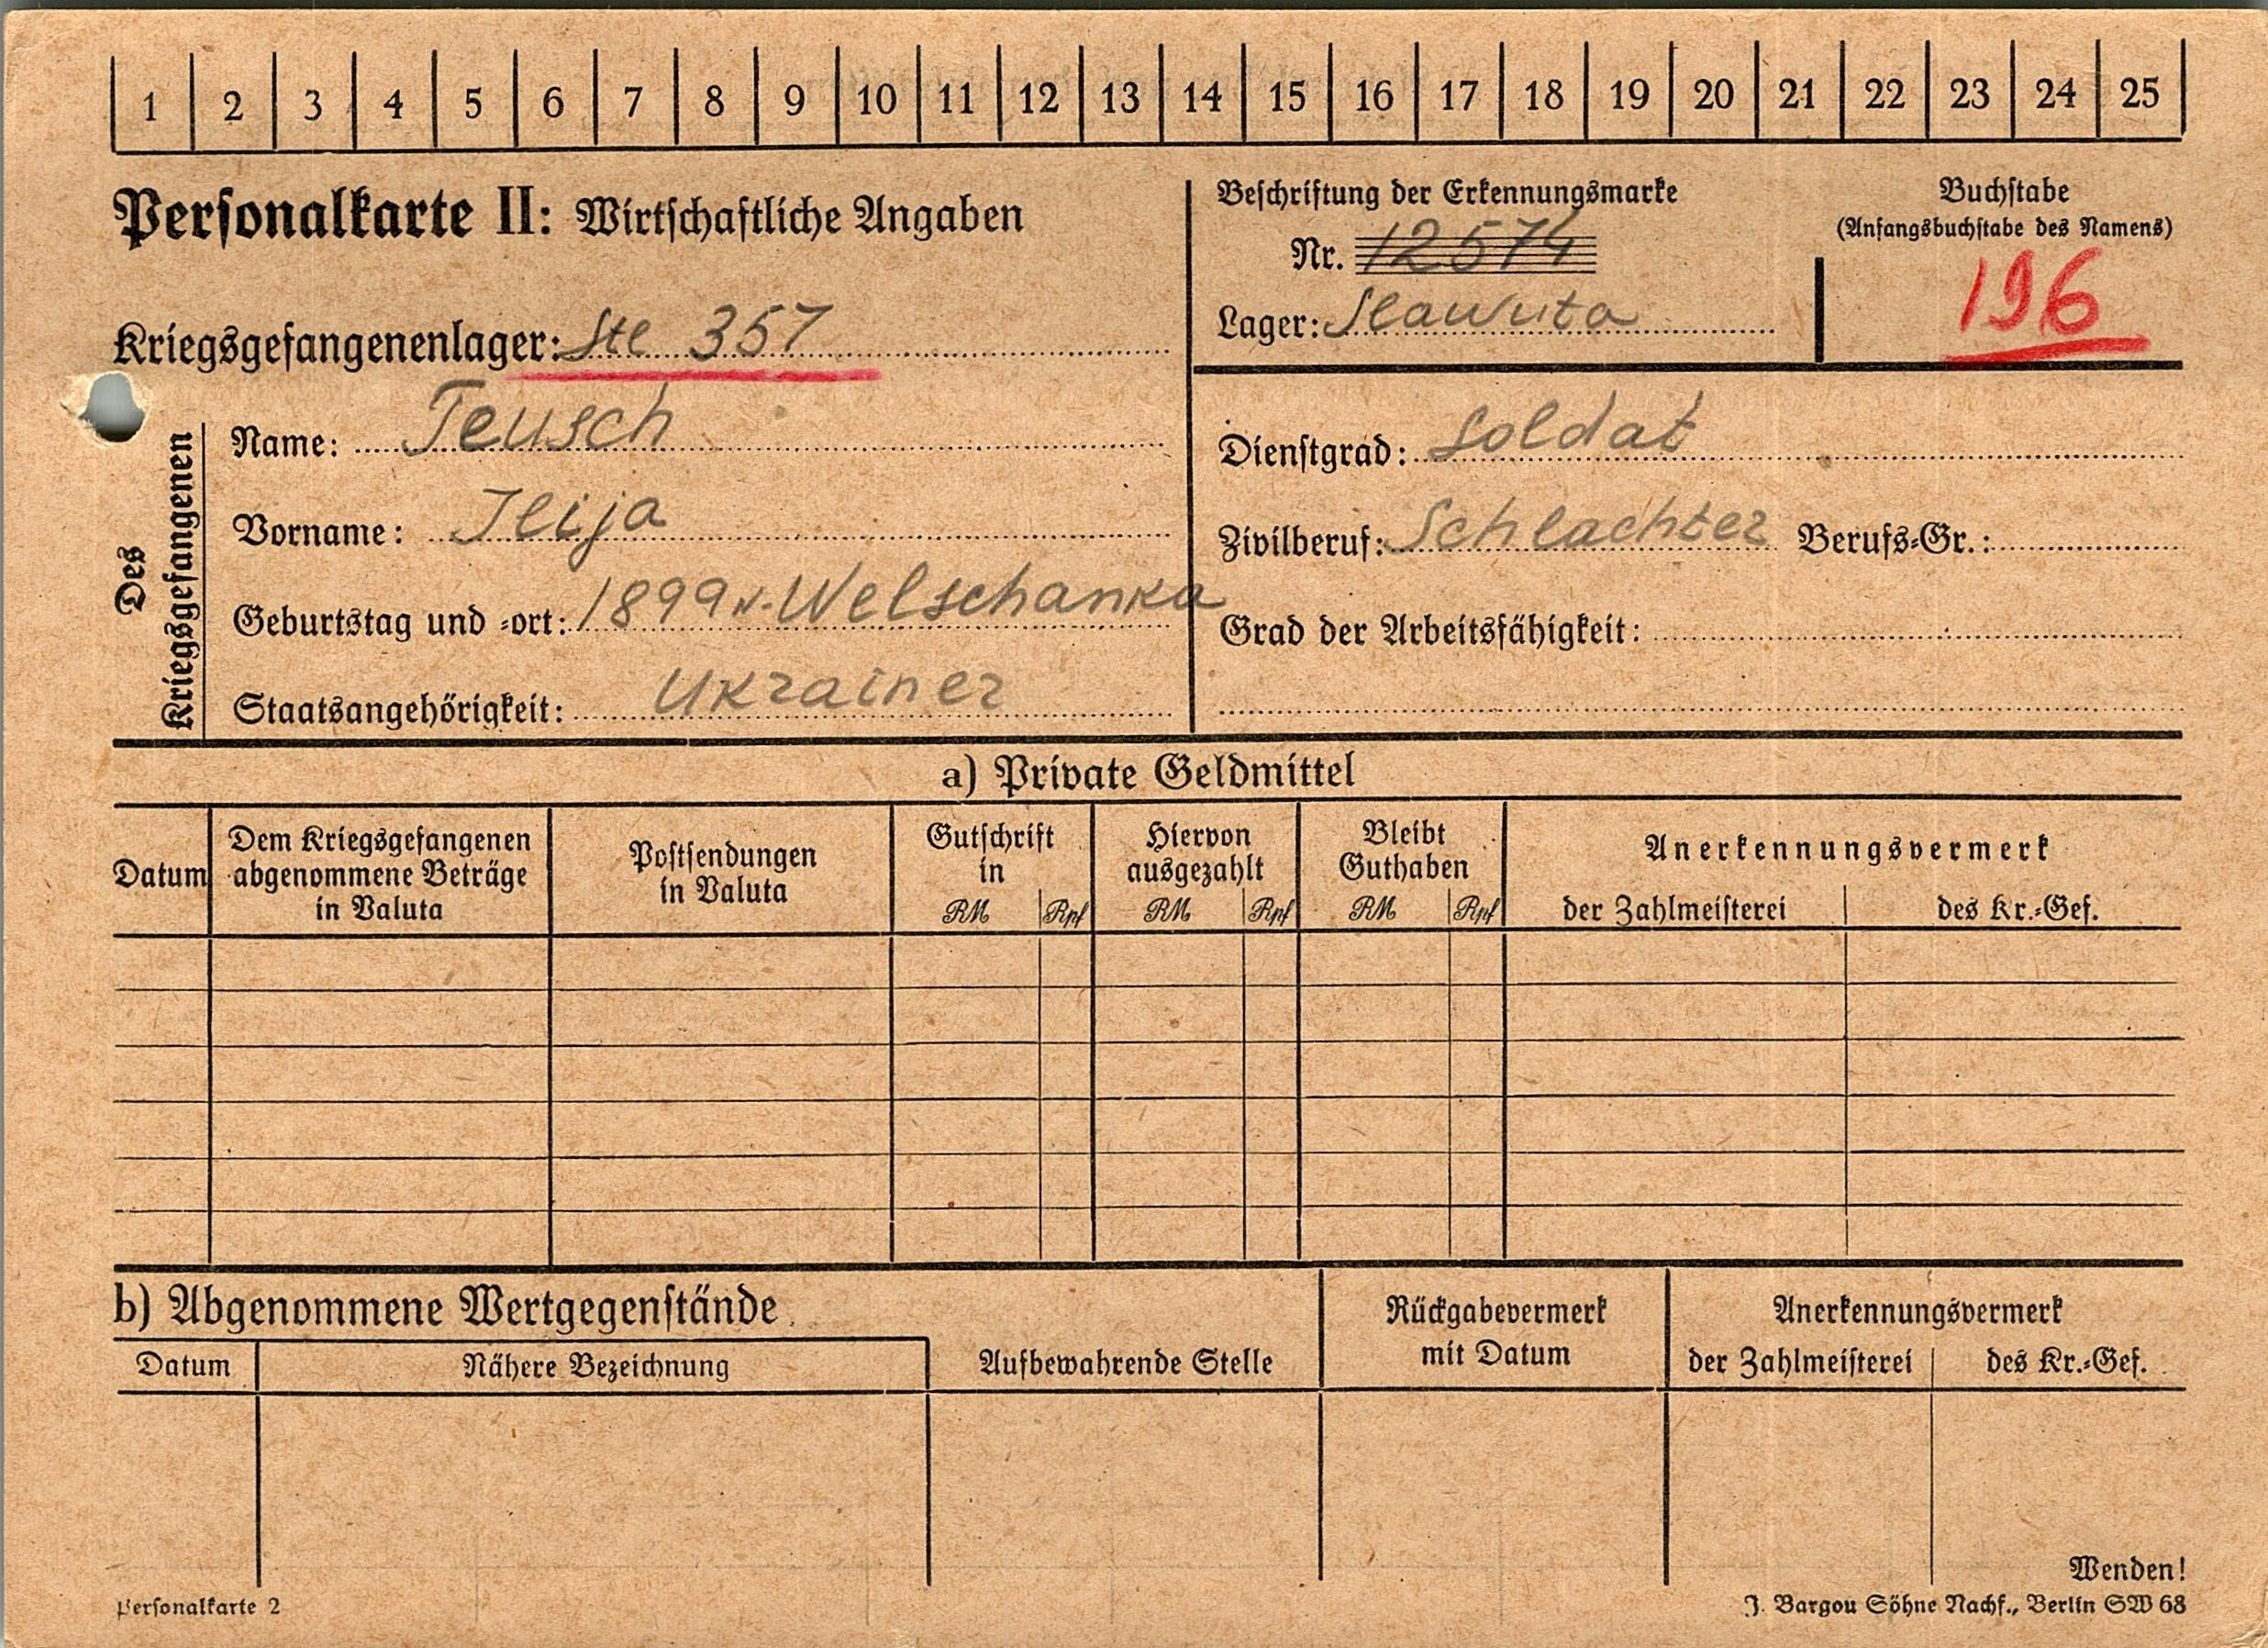 1 2 3 4 5 6 7 8 9 10 11 12 13 14 15 16 17 18 19 20 21 22 23 24 25
Personalkarte II: Wirtschaftliche Angaben
Beschriftung der Erkennungsmarke
Nr. 12574
Lager: Slawuta
Buchstabe
(Anfangsbuchstabe des Namens)
196
Kriegsgefangenenlager: Ste 357
Des Kriegsgefangenen
Name: Teusch
Vorname: Ilija
Geburtstag und -ort: 1899 N. Welschanka
Staatsangehörigkeit: Ukrainer
Dienstgrad: Soldat
Zivilberuf: Schlachter Berufs-Gr.:
Grad der Arbeitsfähigkeit:
a) Private Geldmittel
Datum
Dem Kriegsgefangenen
abgenommene Beträge
in Valuta
Postsendungen
in Valuta
Gutschrift
in
RM Rpf
Hiervon
ausgezahlt
RM Rpf
Bleibt
Guthaben
RM Rpf
Anerkennungsvermerk
der Zahlmeisterei des Kr.-Gef.
b) Abgenommene Wertgegenstände
Datum Nähere Bezeichnung
Aufbewahrende Stelle
Rückgabevermerk
mit Datum
Anerkennungsvermerk
der Zahlmeisterei des Kr.-Gef.
Wenden!
Personalkarte 2
J. Bargou Söhne Nachf., Berlin SW 68